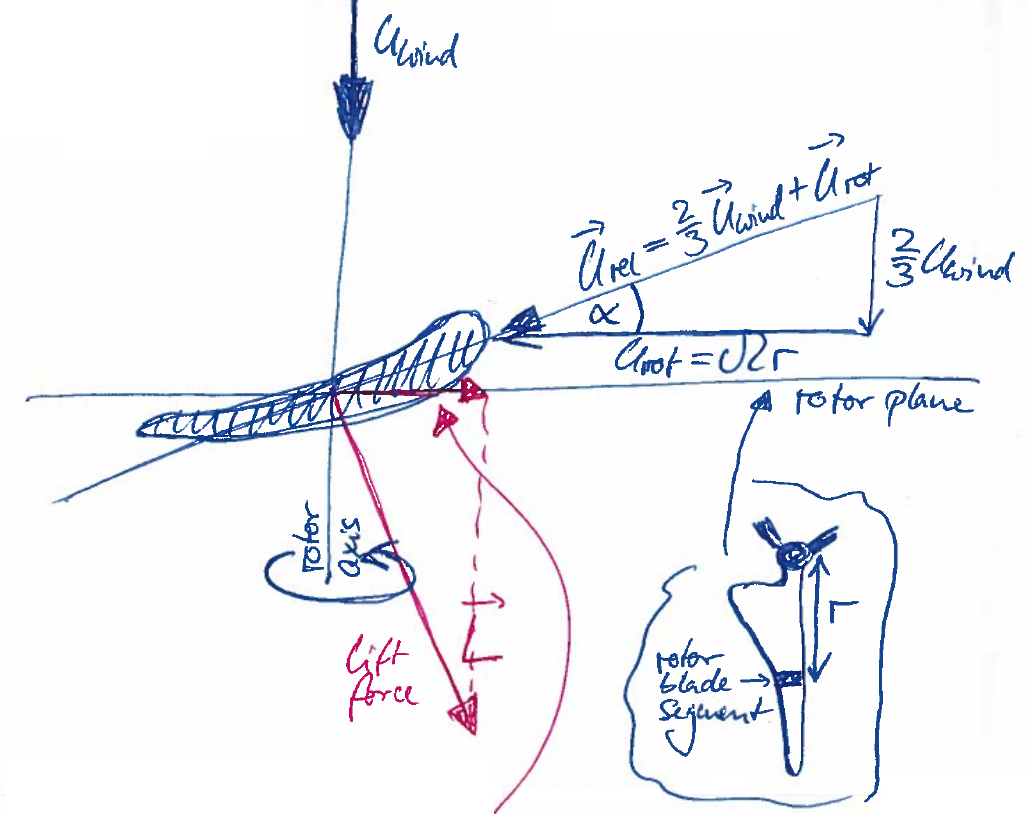 u_wind
u⃗_rel = 2/3 u⃗_wind + u⃗_rot
2/3 u_wind
α
u_rot = Ωr
rotor plane
rotor
axis
L⃗
lift
force
r
rotor
blade
segment